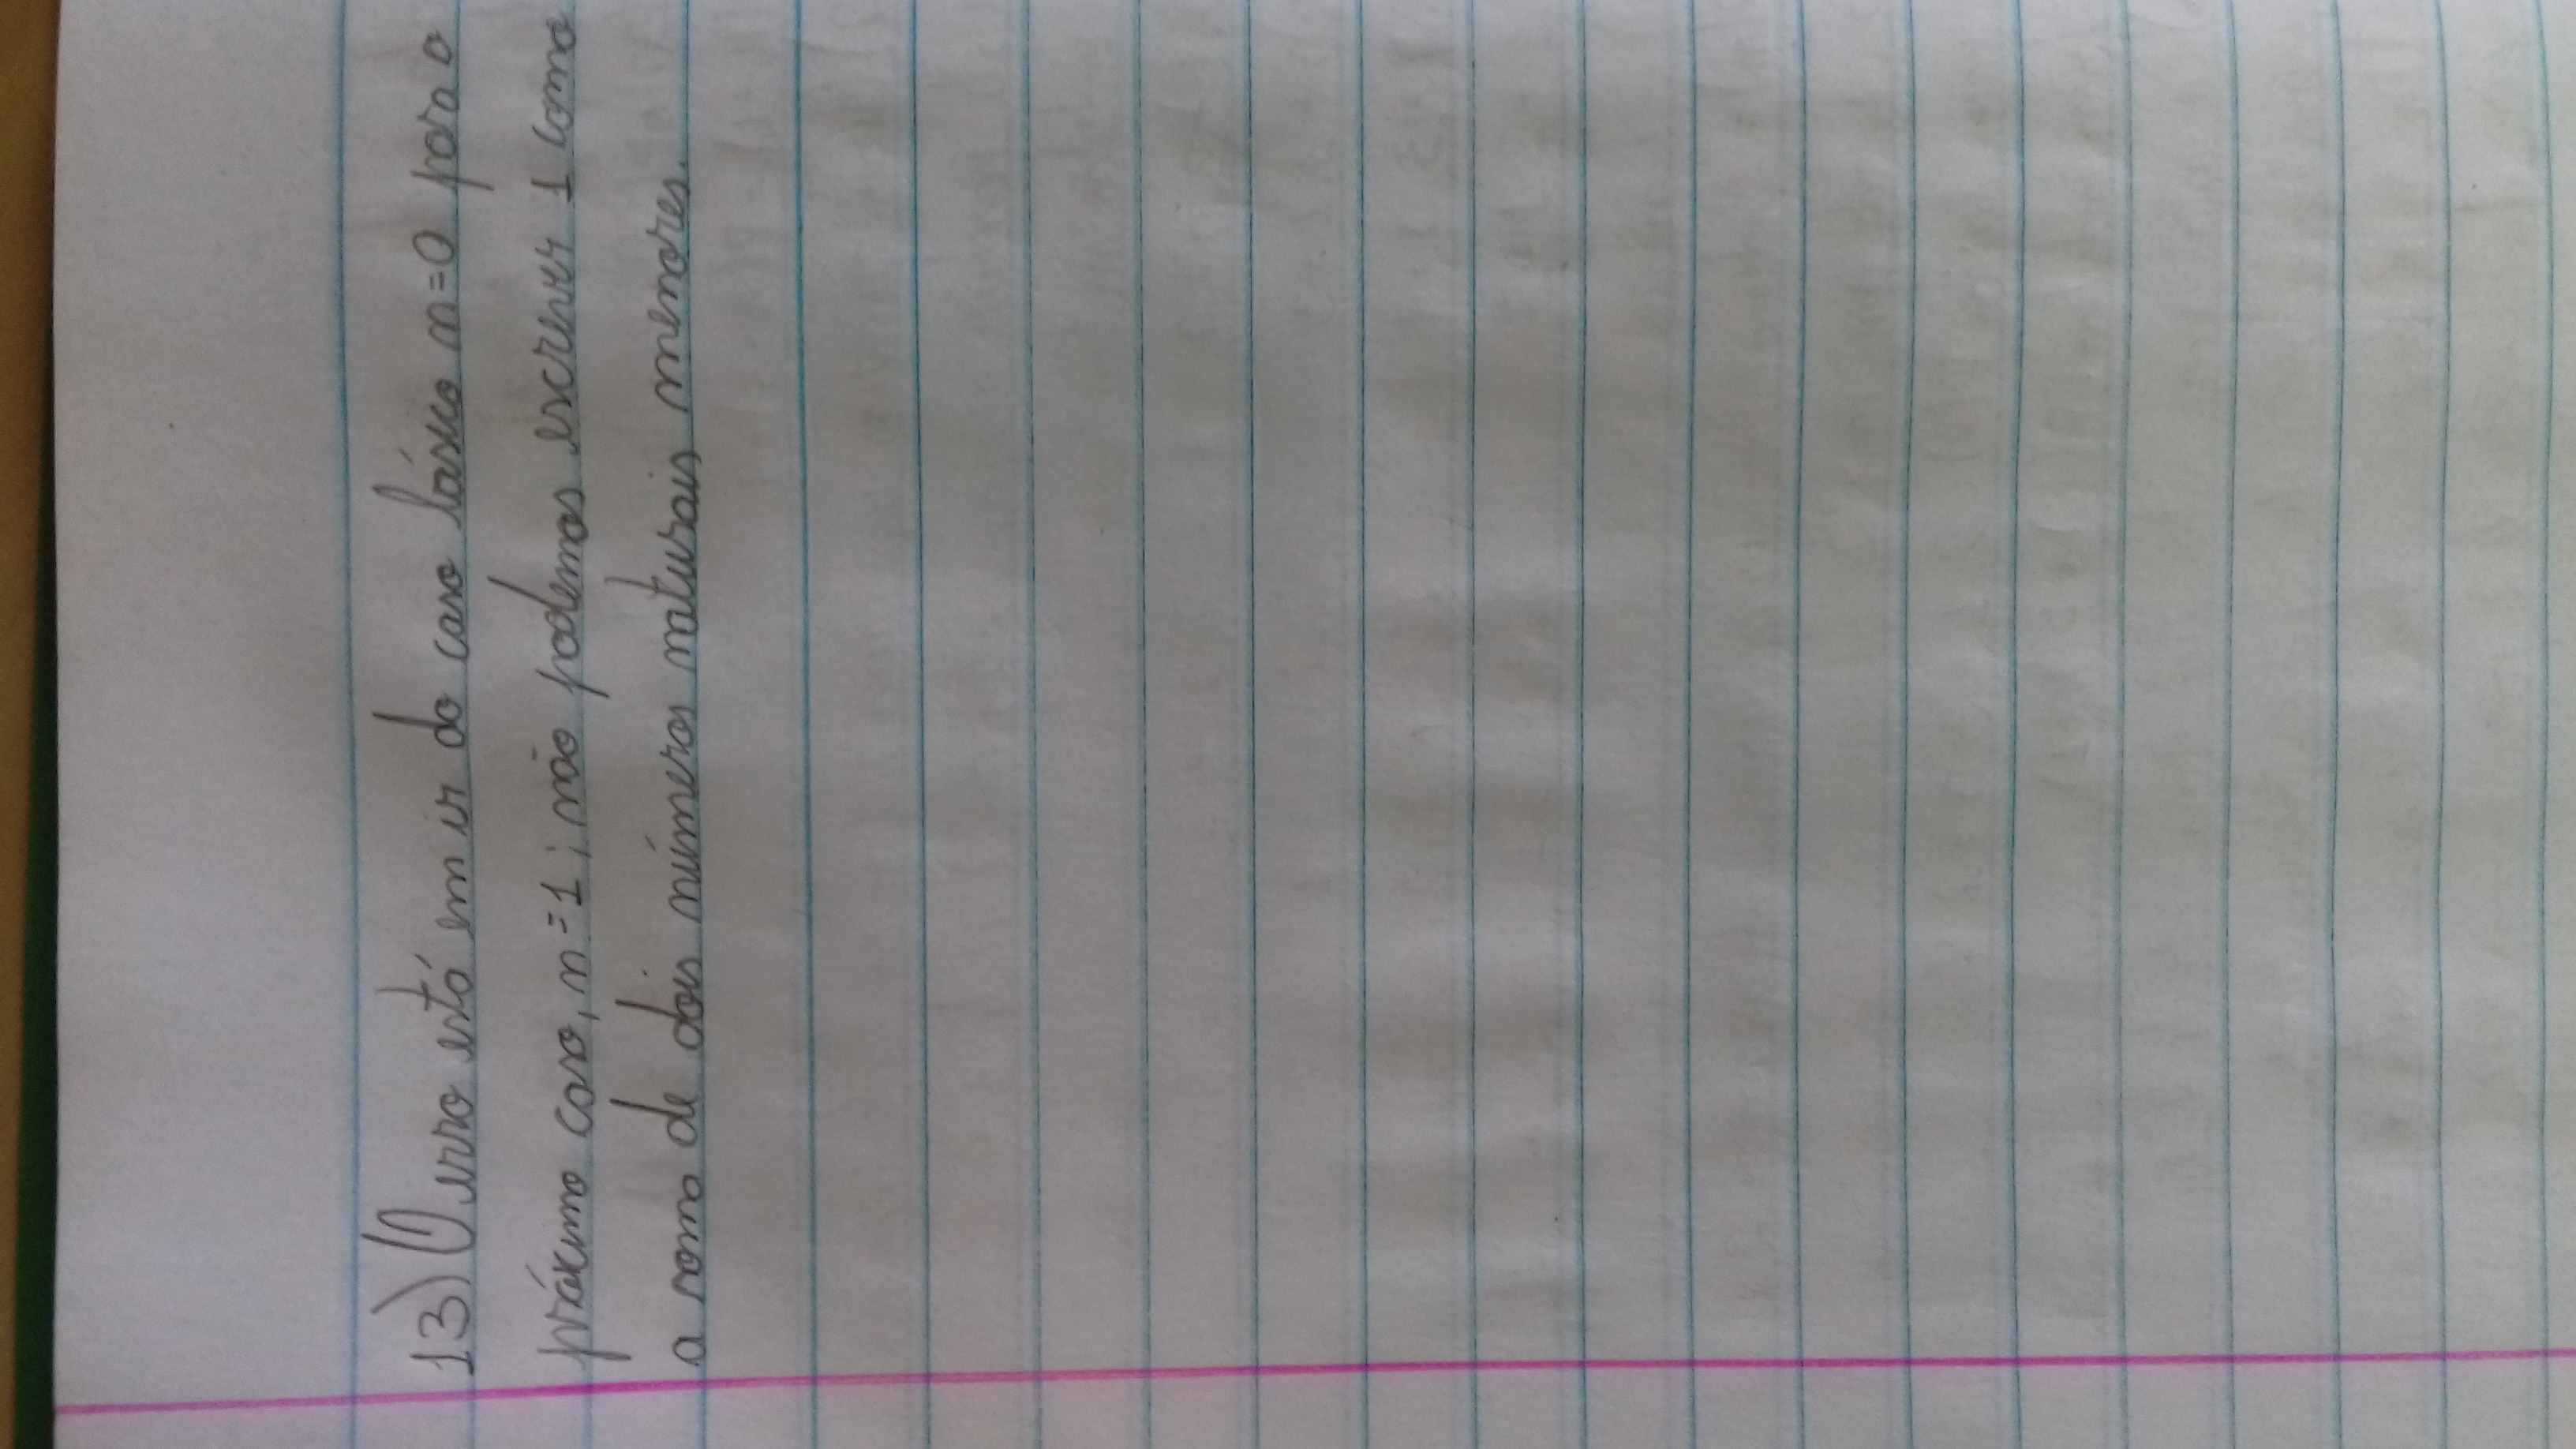 13) O erro está em ir do caso básico n=0 para o
próximo caso, n=1; não podemos escrever 1 como
a soma de dois números naturais menores.